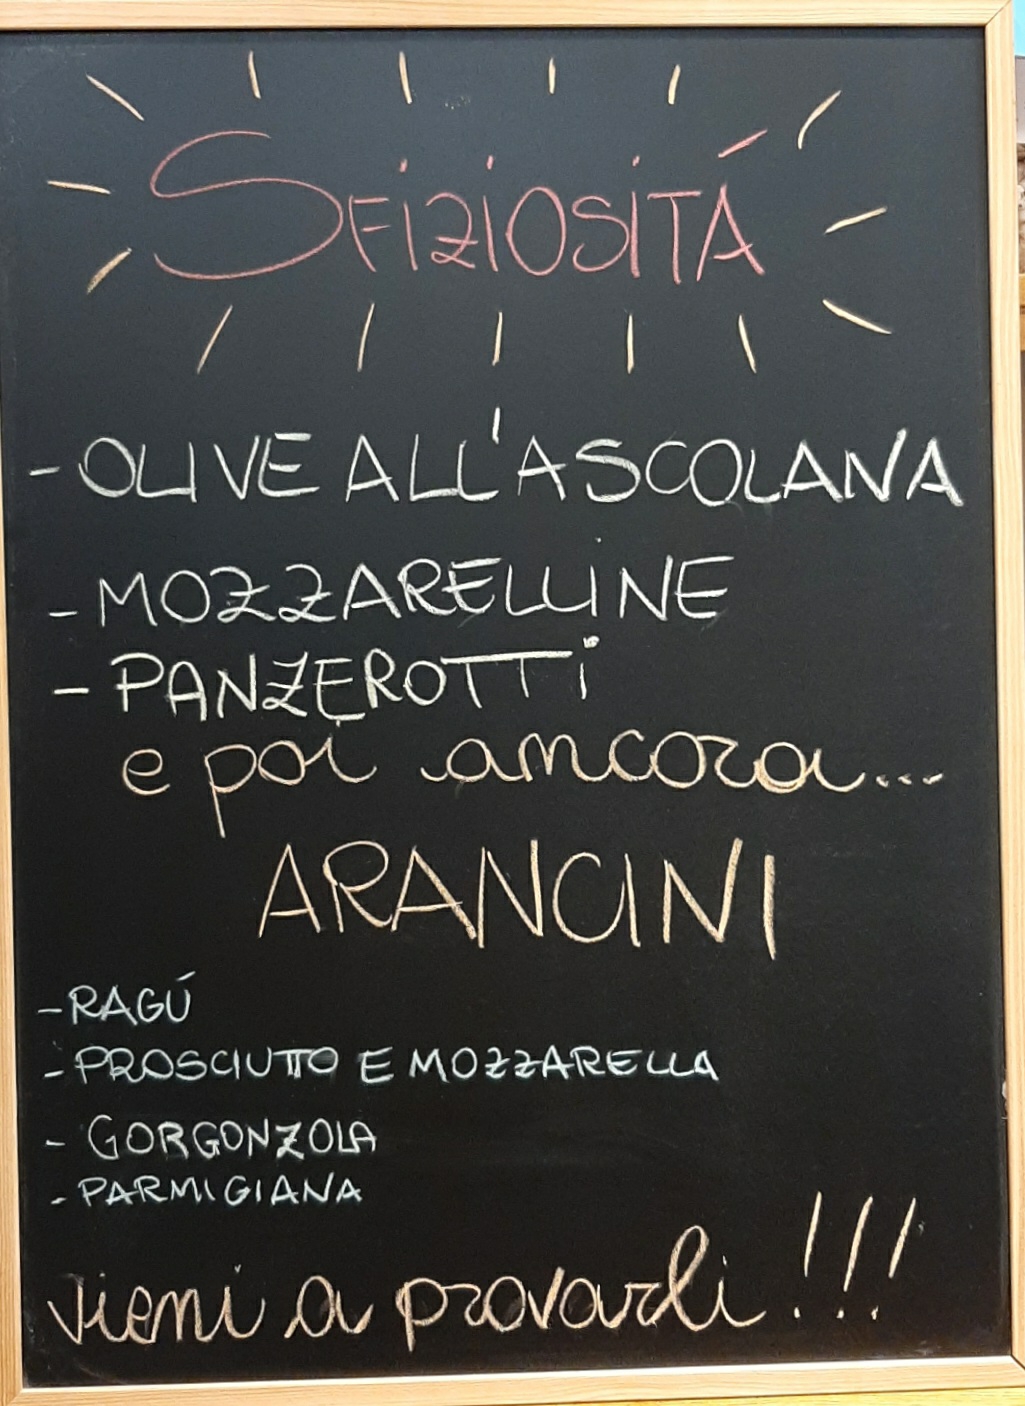 SFIZIOSITÁ
- OLIVE ALL'ASCOLANA
- MOZZARELLINE
- PANZEROTTI
e poi ancora...
ARANCINI
- RAGÚ
- PROSCIUTTO E MOZZARELLA
- GORGONZOLA
- PARMIGIANA
vieni a provarli!!!